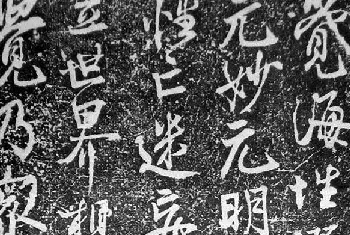 覺海性
元妙元明
性亡迷妄
立世界想
覺乃眾